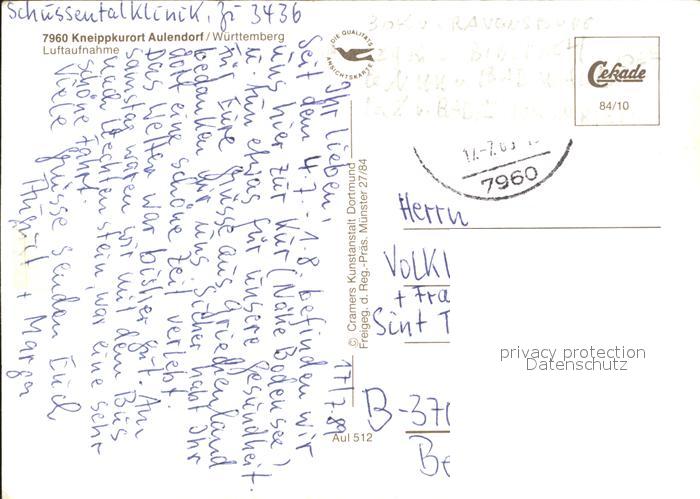 Schussentalklinik, Zi 3436
7960 Kneippkurort Aulendorf / Württemberg
Luftaufnahme
DIE QUALITÄTS
ANSICHTSKARTE
Cekade
84/10
7960
17/7.89
Ihr Lieben,
seit dem 4.7. - 1.8. befinden wir
uns hier zur Kur (Nähe Bodensee)
u. tun etwas für unsere Gesundheit.
Für Eure Grüsse aus Griechenland
bedanken wir uns. Sicher habt Ihr
dort eine schöne Zeit verlebt.
Das Wetter war bisher gut. Am
Samstag waren wir mit dem Bus
nach Liechtenstein, war eine sehr
schöne Fahrt.
Viele Grüsse senden Euch
+ Marga
© Cramers Kunstanstalt Dortmund
Freigeg. d. Reg.-Präs. Münster 27/84
Aul 512
Herrn
Volk
+ Fra
Sint T
B-371
Be
privacy protection
Datenschutz